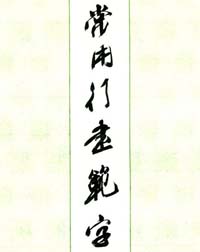 常用行書範字